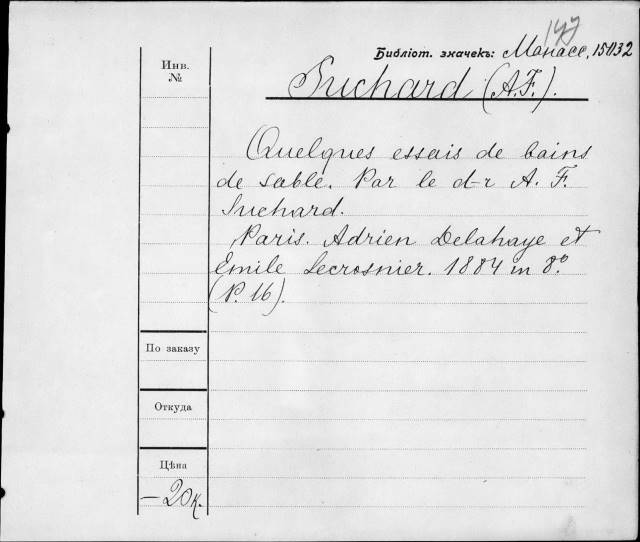 147
Библіот. значекъ: Манасс, 15432
Suchard (A.F.).
Инв.
№
Quelques essais de bains
de sable. Par le d-r A. F.
Suchard.
Paris. Adrien Delahaye et
Emile Lecrosnier. 1884 in 8°.
(P. 16).
По заказу
Откуда
Цѣна
—20к.